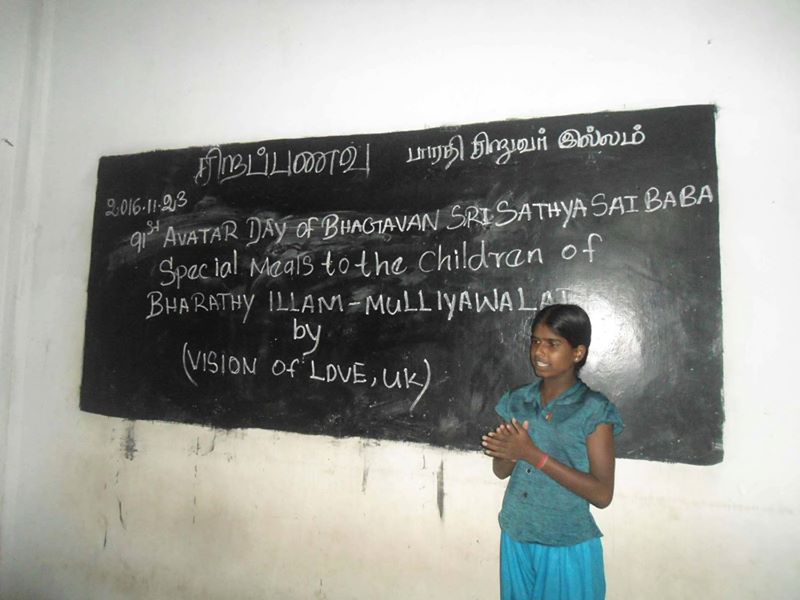 சிறப்பணவு பாரதி சிறுவர் இல்லம்
2016.11.23
91st AVATAR DAY of BHAGTAVAN SRI SATHYA SAI BABA
Special Meals to the Children of
BHARATHY ILLAM - MULLIYAWALAI
by
(VISION of LOVE, UK)